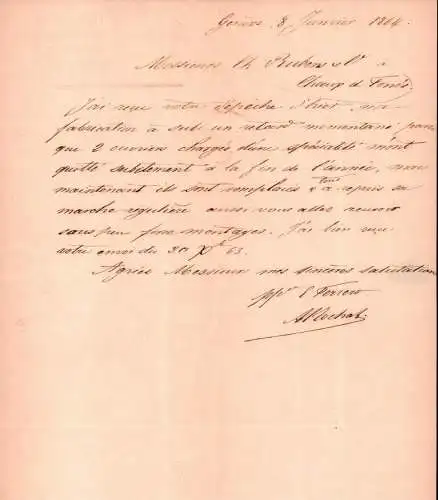 Genève 8 Janvier 1864
Messieurs Ch Rubens & Cie à
Chaux d Fonds
J'ai reçu votre dépêche d'hier, ma
fabrication à subi un retard momentané parce
que 2 ouvriers chargés d'une spécialité m'ont
quitté subitement à la fin de l'année, mais
maintenant ils sont remplacés & tout à repris sa
marche régulière aussi vous allez recevoir
sous peu fins montages. J'ai bien reçu
votre envoi du 20 Xbre 63.
Agréez Messieurs mes sincères salutations
ppn E